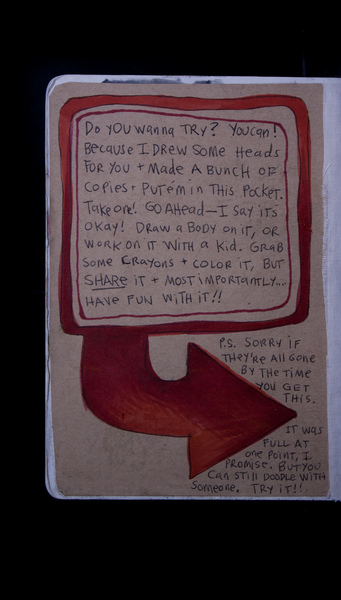 Do you wanna try? You can!
Because I drew some heads
for you + made a bunch of
copies + put em in this pocket.
Take one! Go ahead—I say it's
okay! Draw a body on it, or
work on it with a kid. Grab
some crayons + color it, but
SHARE it + most importantly...
have fun with it!!
P.S. Sorry if
they're all gone
by the time
you get
this.
It was
full at
one point, I
promise. But you
can still doodle with
someone. Try it!!